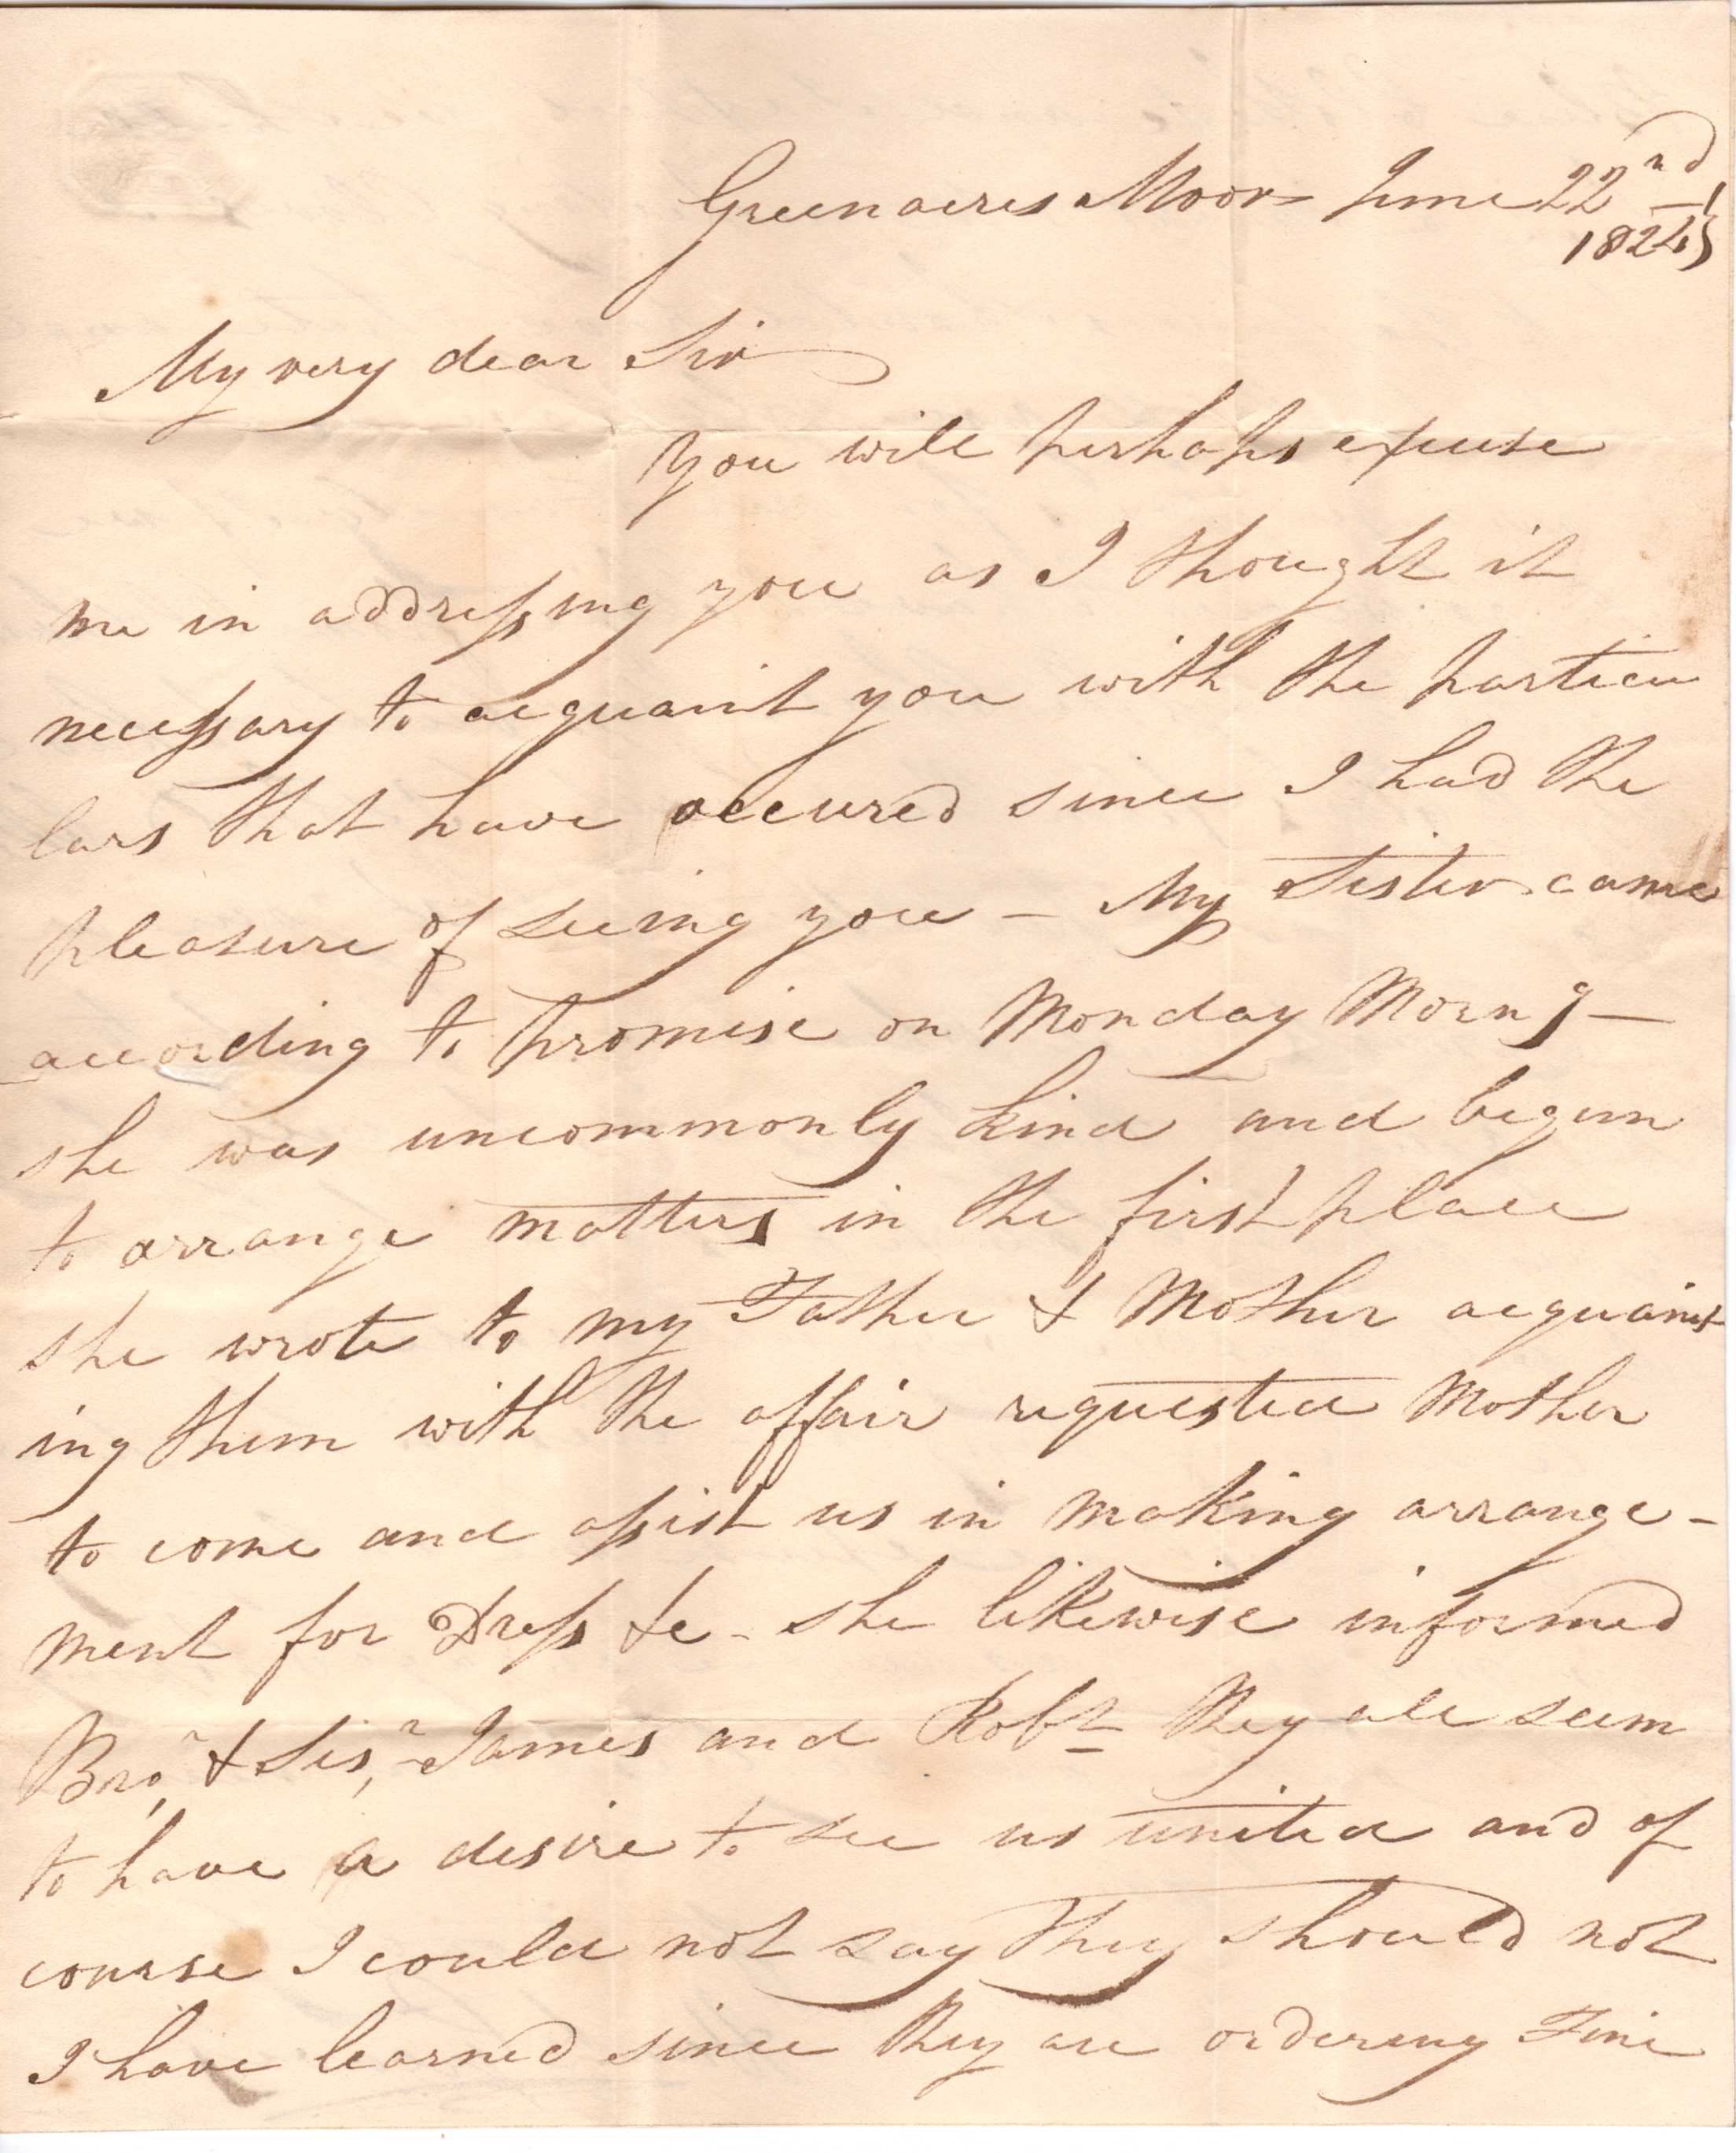 Greenacres Moor June 22nd
1824
My very dear Sir
you will perhaps excuse
me in addressing you as I thought it
necessary to acquaint you with the particu
lars that have occured since I had the
pleasure of seeing you – My Sister came
according to promise on Monday Morng –
she was uncommonly kind and begun
to arrange matters in the first place
she wrote to my Father & Mother acquaint
ing them with the affair requested Mother
to come and assist us in making arrange-
ment for Dress &c – she likewise informed
Bror & Sisr James and Robt they all seem
to have a desire to see us united and of
course I could not say they should not
I have learned since they are ordering Fine